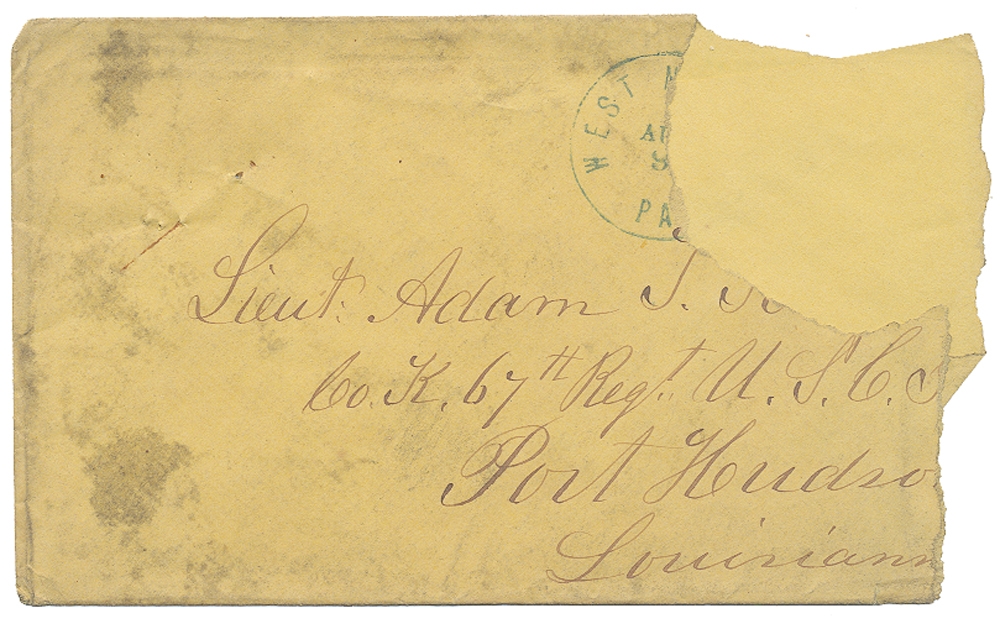 WEST
PA
Lieut. Adam
Co. K. 67th Regt. U. S. C.
Port
Louisiann